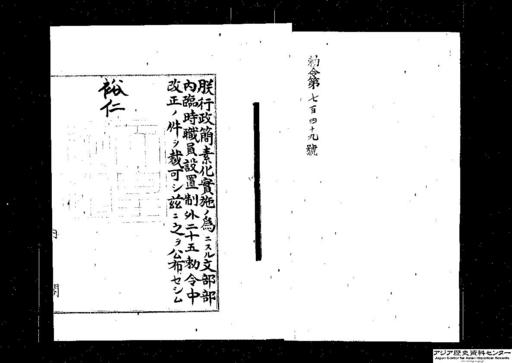 勅令第七百四十九號
朕行政簡素化實施ノ為ニスル文部部
內臨時職員設置制外二十五勅令中
改正ノ件ヲ裁可シ茲ニ之ヲ公布セシム
裕仁
內閣
アジア歴史資料センター
Japan Center for Asian Historical Records